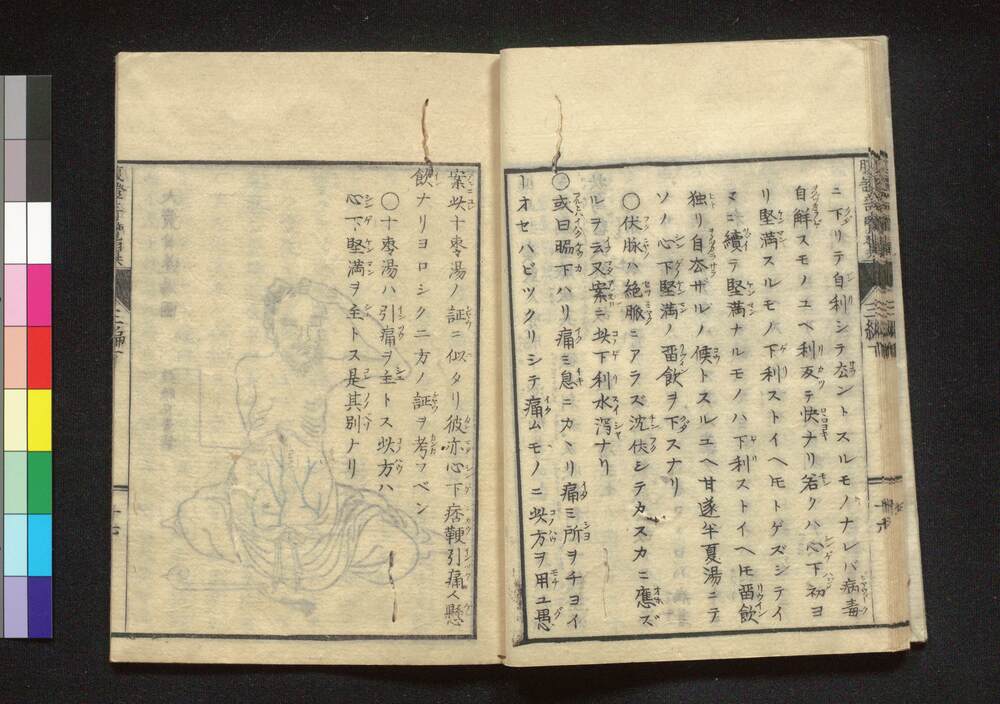 ニ下リテ自利シテ厺ントスルモノナレバ病毒
自解スモノユヘ利友テ快ナリ若クハ心下初ヨ
リ堅満スルモノ下利ストイヘ𪜈トゲズシテイ
マニ續テ堅満ナルモノハ下利ストイヘ𪜈畱飲
独リ自厺ザルノ候トスルユヘ甘遂半夏湯ニテ
ソノ心下堅満ノ畱飲ヲ下スナリ
〇伏脉ハ絶脈ニアラズ沈伏シテカスカニ應ズ
ルヲ云又案ニ此下利水瀉ナリ
〇或曰脇下ハリ痛ミ息ニカヽリ痛ミ所ヲチヨイ
トオセハビツクリシテ痛ムモノニ此方ヲ用ユ愚
案此十枣湯ノ証ニ似タリ彼亦心下痞鞕引痛懸
飲ナリヨロシク二方ノ証ヲ考フベン
〇十枣湯ハ引痛ヲ主トス此方ハ
心下堅満ヲ主トス是其別ナリ